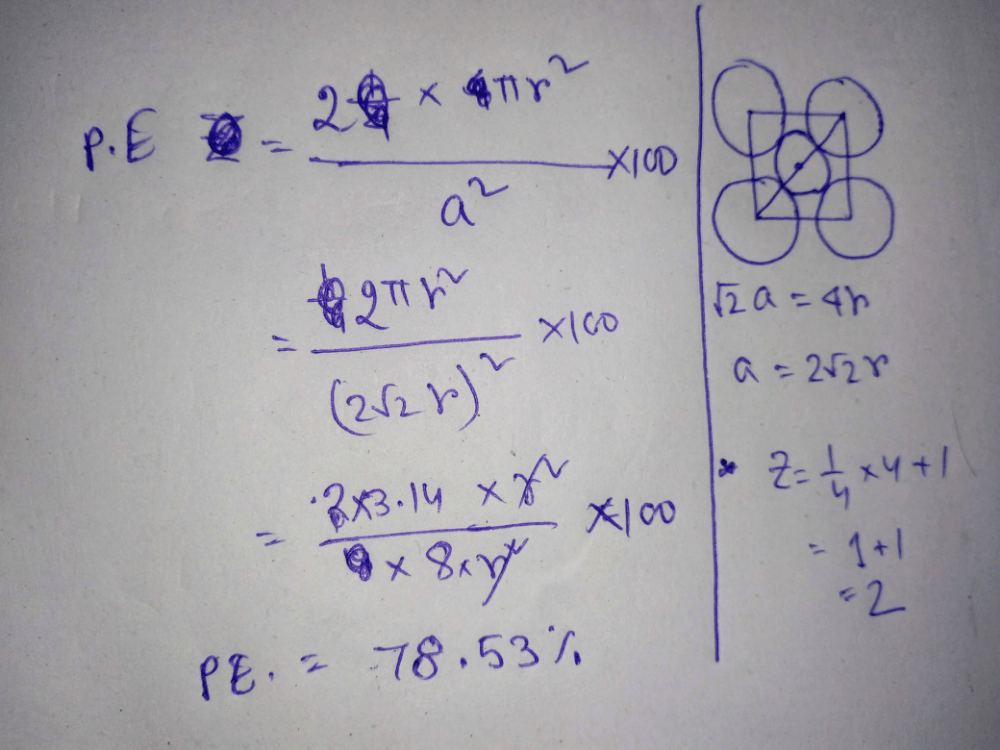 P.E = 2 × πr² / a² ×100
= 2πr² / (2√2 r)² ×100
= 2×3.14 × r² / × 8×r² ×100
PE. = 78.53%
√2 a = 4r
a = 2√2r
* Z = 1/4 × 4 + 1
= 1+1
= 2